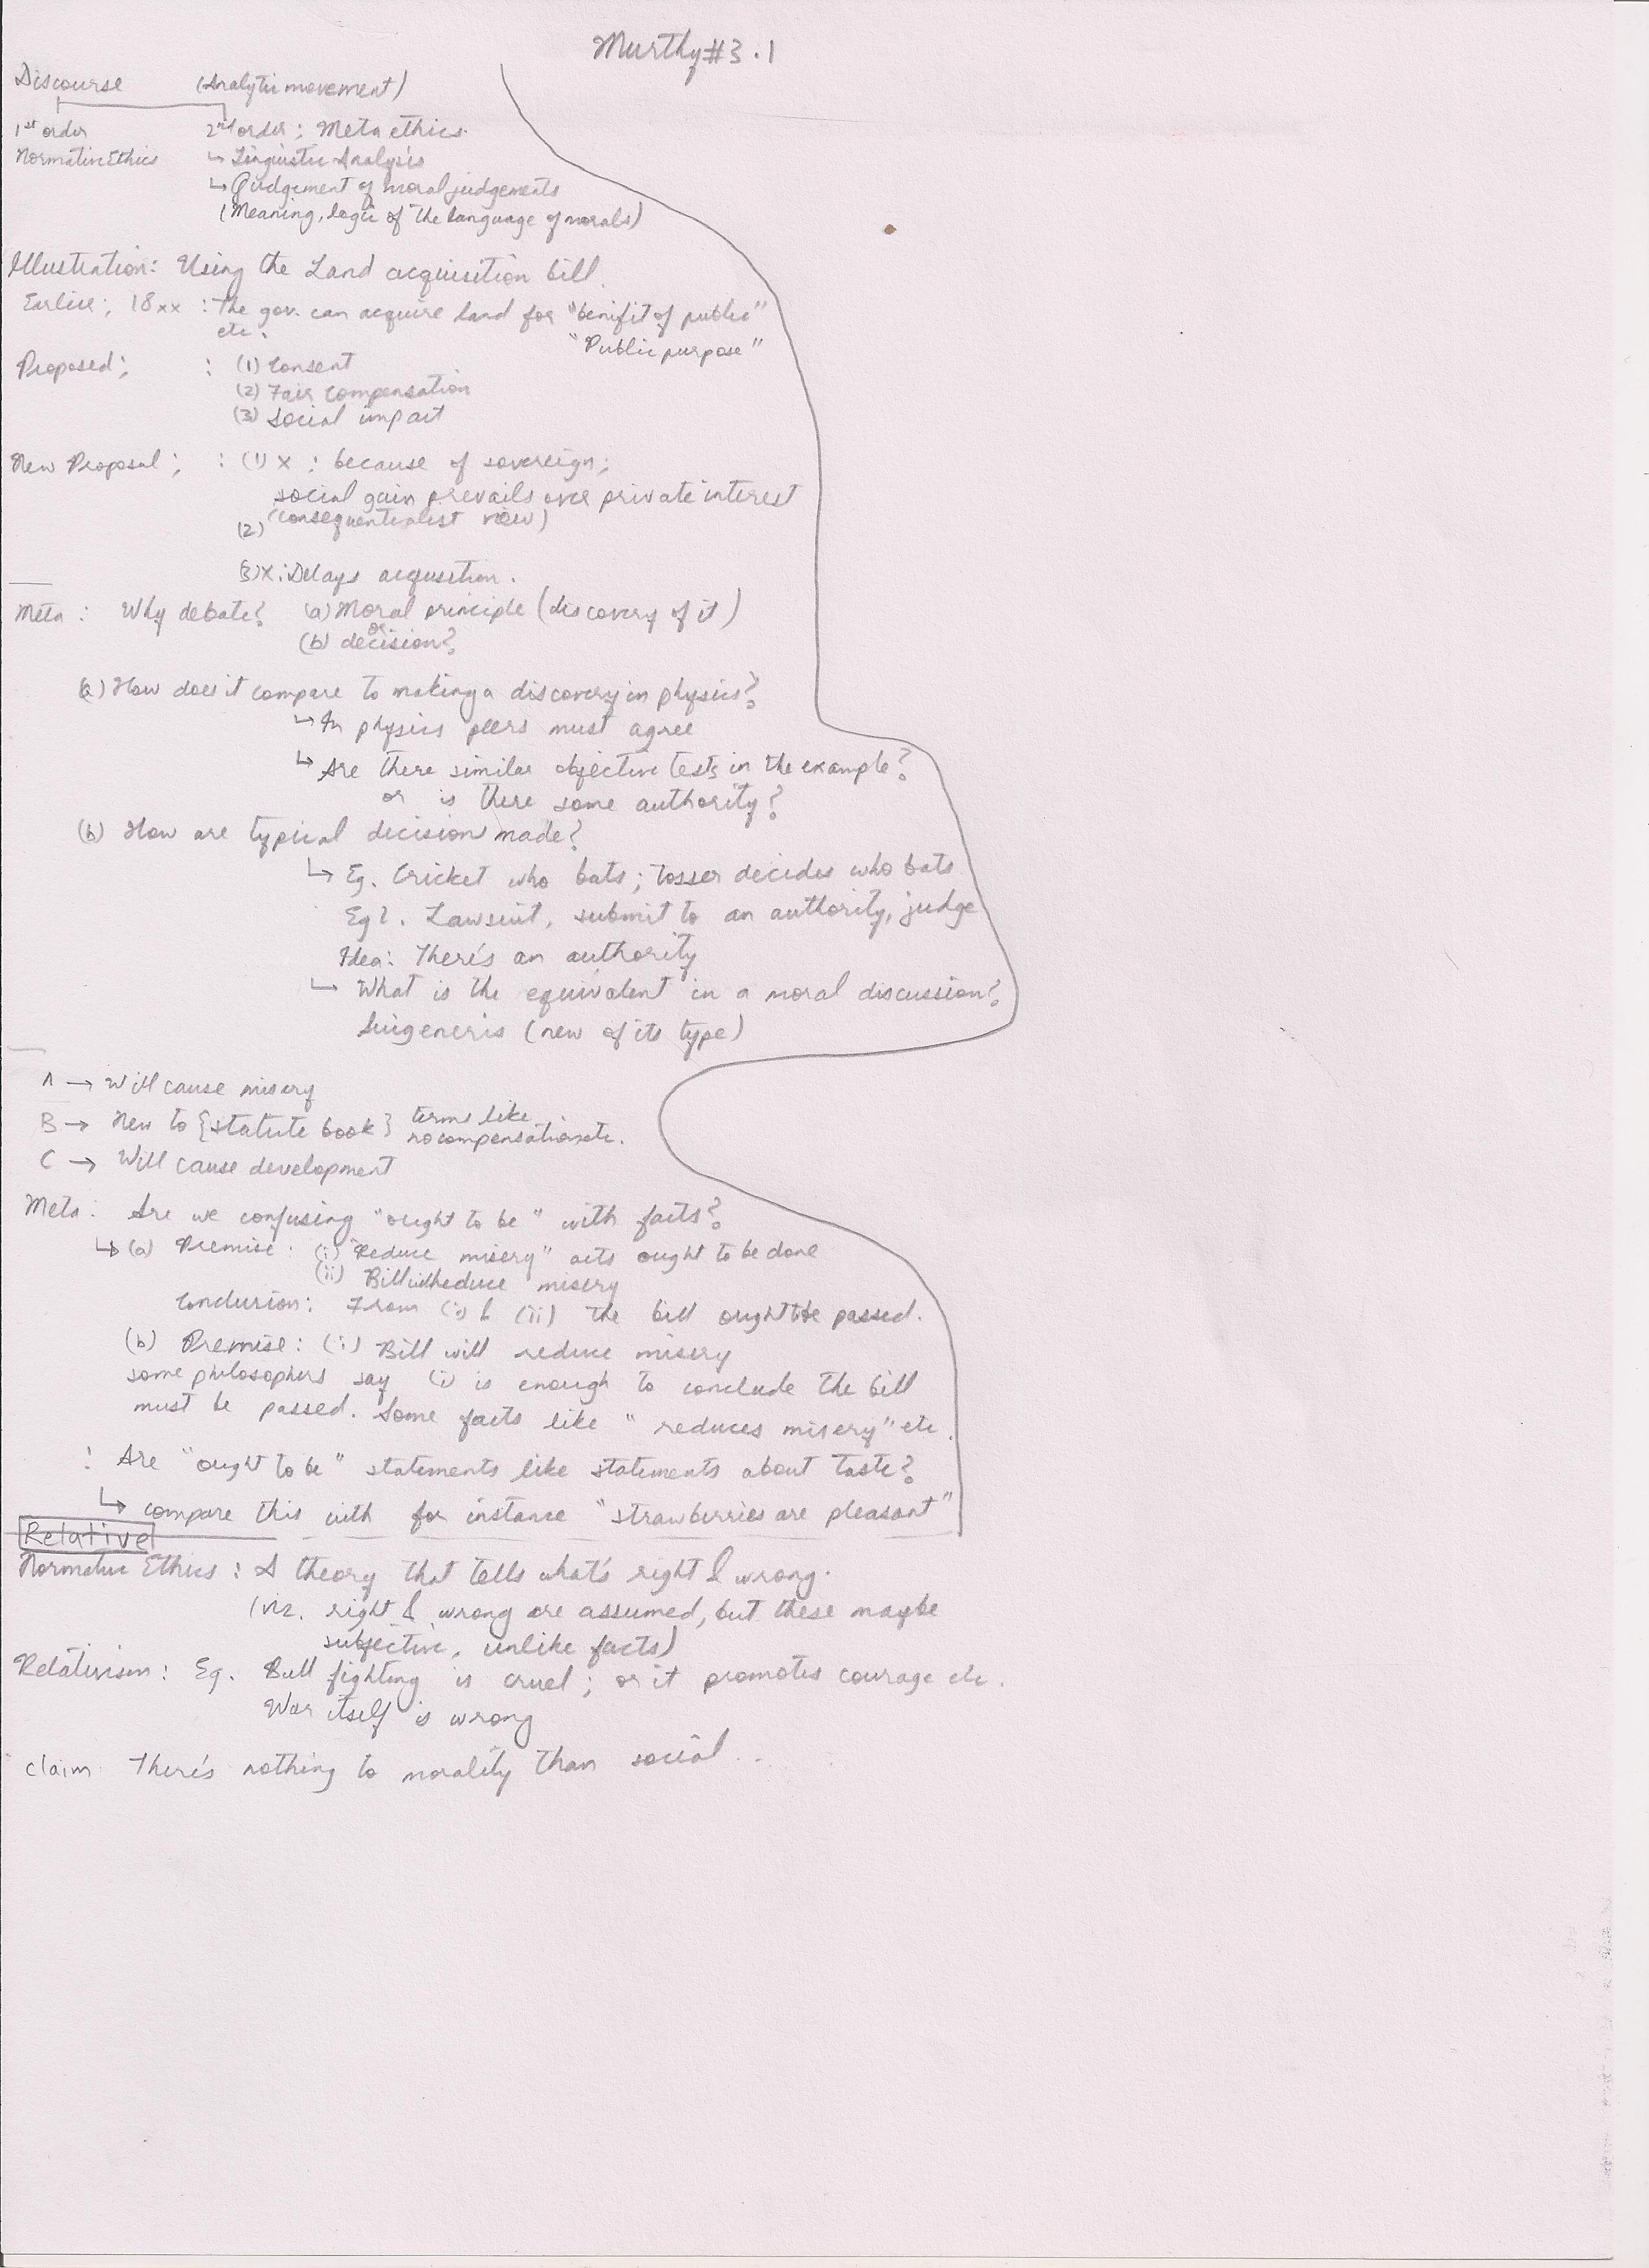 Murthy#3.1
Discourse (Analytic movement)
1st order 2nd order; Meta ethics.
Normative Ethics ↳ Linguistic Analysis
↳ Judgement of moral judgements
(Meaning, logic of the language of morals)
Illustration: Using the Land acquisition bill.
Earlier; 18xx : The gov. can acquire land for "benifit of public"
etc. "Public purpose"
Proposed; : (1) Consent
(2) Fair Compensation
(3) Social impact
New Proposal; : (1) x : because of sovereign;
social gain prevails over private interest
(consequentialist view)
(2)
(3)x: Delays acqusition.
Meta: Why debate? (a) Moral principle (discovery of it)
or
(b) decision?
(a) How does it compare to making a discovery in physics?
↳ In physics peers must agree
↳ Are there similar objective tests in the example?
or is there some authority?
(b) How are typical decision made?
↳ Eg. Cricket who bats; tosser decides who bats
Eg2. Lawsuit, submit to an authority, judge
Idea: There's an authority
↳ What is the equivalent in a moral discussion?
Suigeneris (new of its type)
A → Will cause misery
B → New to {statute book} terms like
no compensation etc.
C → Will cause development
Meta: Are we confusing "ought to be" with facts?
↳ (a) Premise: (i) "Reduce misery" acts ought to be done
(ii) Bill will reduce misery
Conclusion: From (i) & (ii) the bill ought to be passed.
(b) Premise: (i) Bill will reduce misery
some philosophers say (i) is enough to conclude the bill
must be passed. Some facts like "reduces misery" etc.
: Are "ought to be" statements like statements about taste?
↳ compare this with for instance "strawberries are pleasant"
Relative
Normative Ethics: A theory that tells what's right & wrong.
(viz. right & wrong are assumed, but these maybe
subjective, unlike facts)
Relativism: Eg. Bull fighting is cruel; or it promotes courage etc.
War itself is wrong
claim: There's nothing to morality than social...